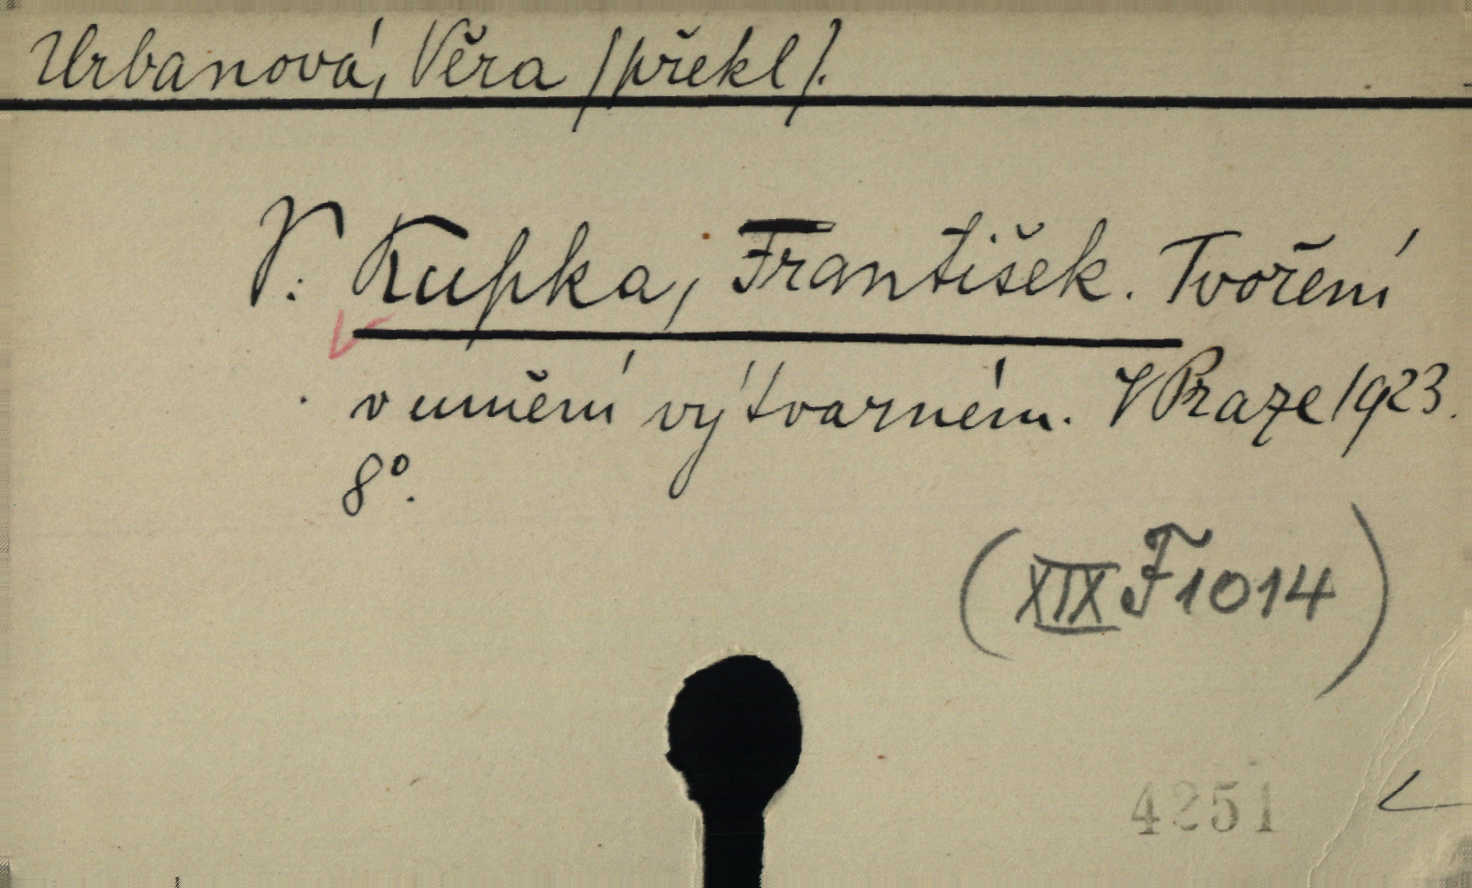 Urbanová, Věra /překl/.
V: Kupka, František. Tvoření
v umění výtvarném. V Praze 1923.
8°.
(XIX F 1014)
4251